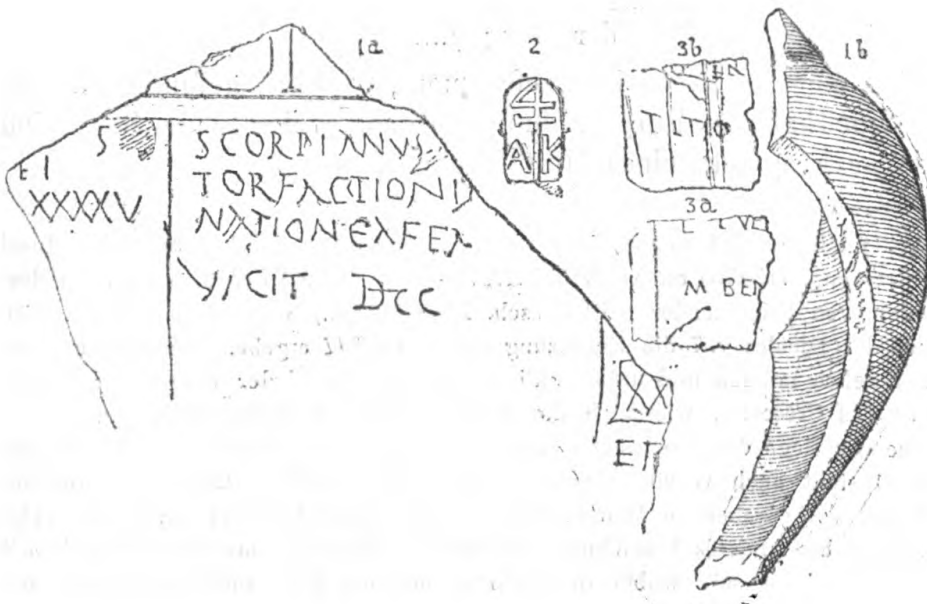 1a
I S
XXXXV
SCORPIANVS
TOR FACTIONIS
NATION•EX AFER
VICIT DCC
XX
ET
2
4
AK
3b
TITIO
3a
L VE
M BEN
1b